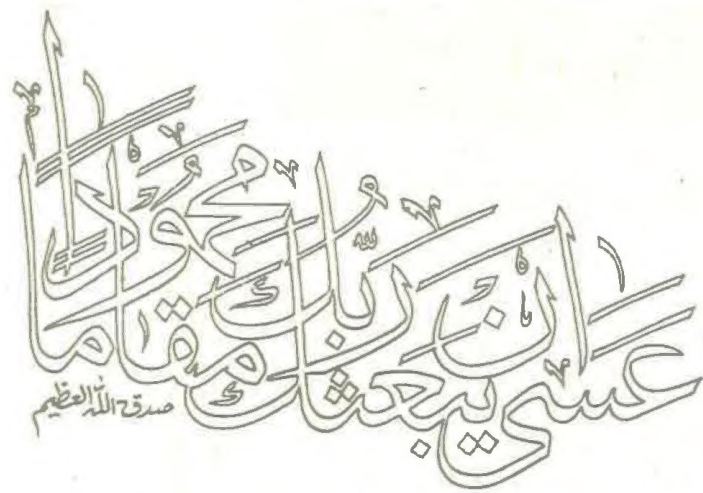 عَسَىٰ أَن يَبْعَثَكَ رَبُّكَ مَقَامًا مَّحْمُودًا
صدق الله العظيم